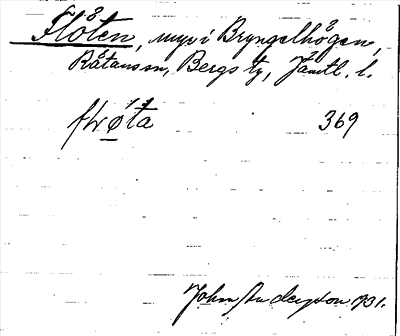 Flåten, myr i Bryngelhögen,
Rätans sn, Bergs tg, Jämtl. l.
369
John Anderson 1931.